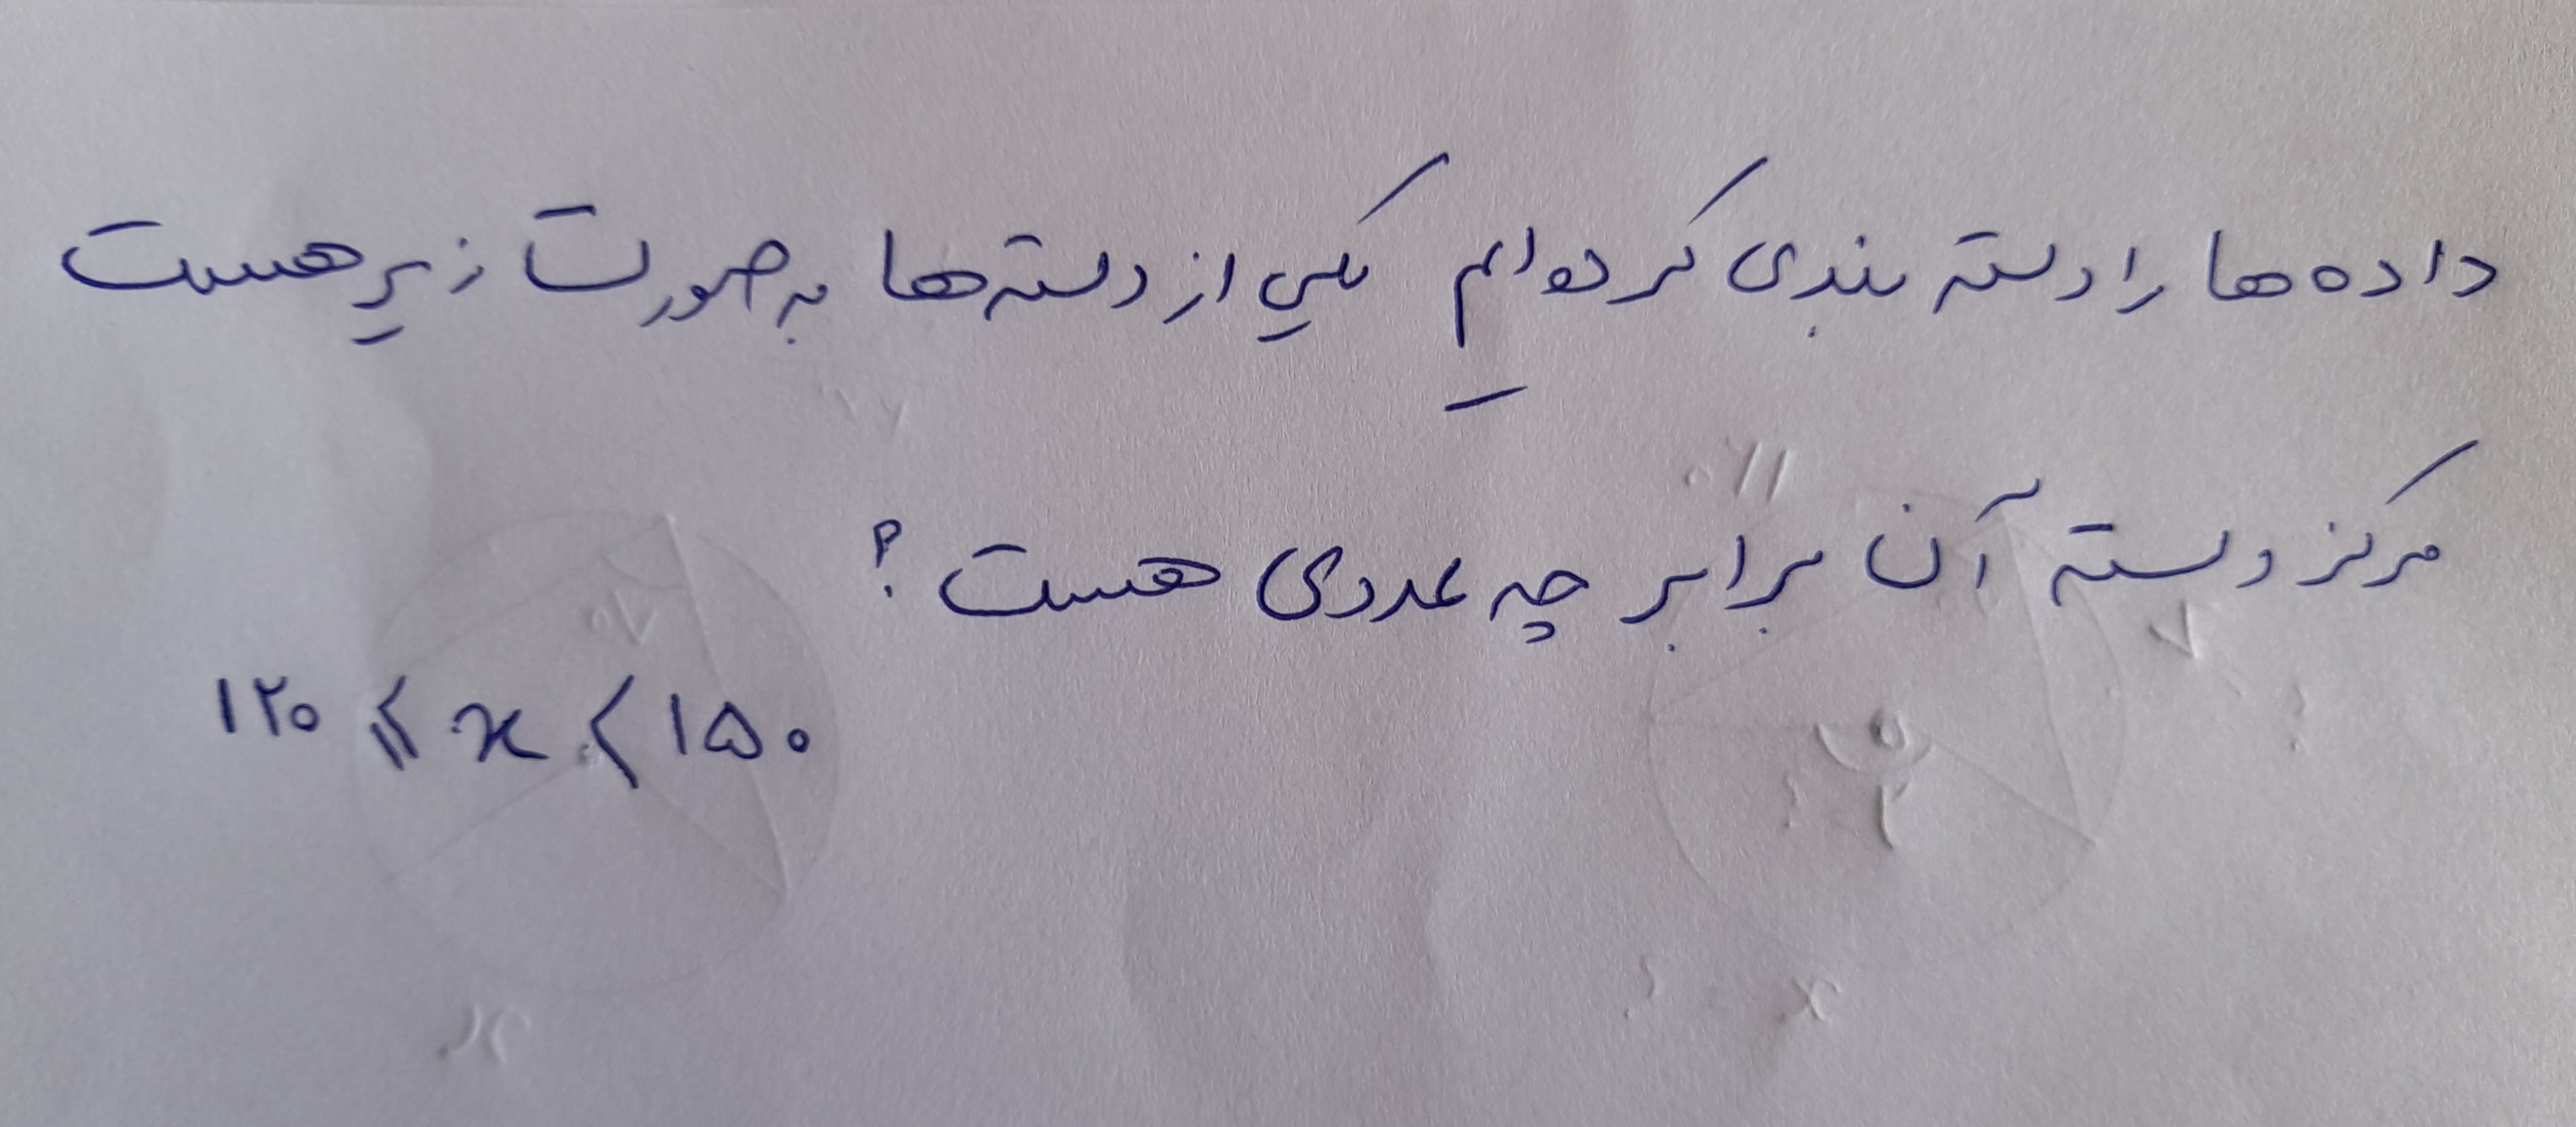 داده ها را دسته بندی کرده ایم یکی از دسته ها به صورت زیر هست
مرکز دسته آن برابر چه عددی هست ؟
۱۲۰ ≤ x < ۱۵۰